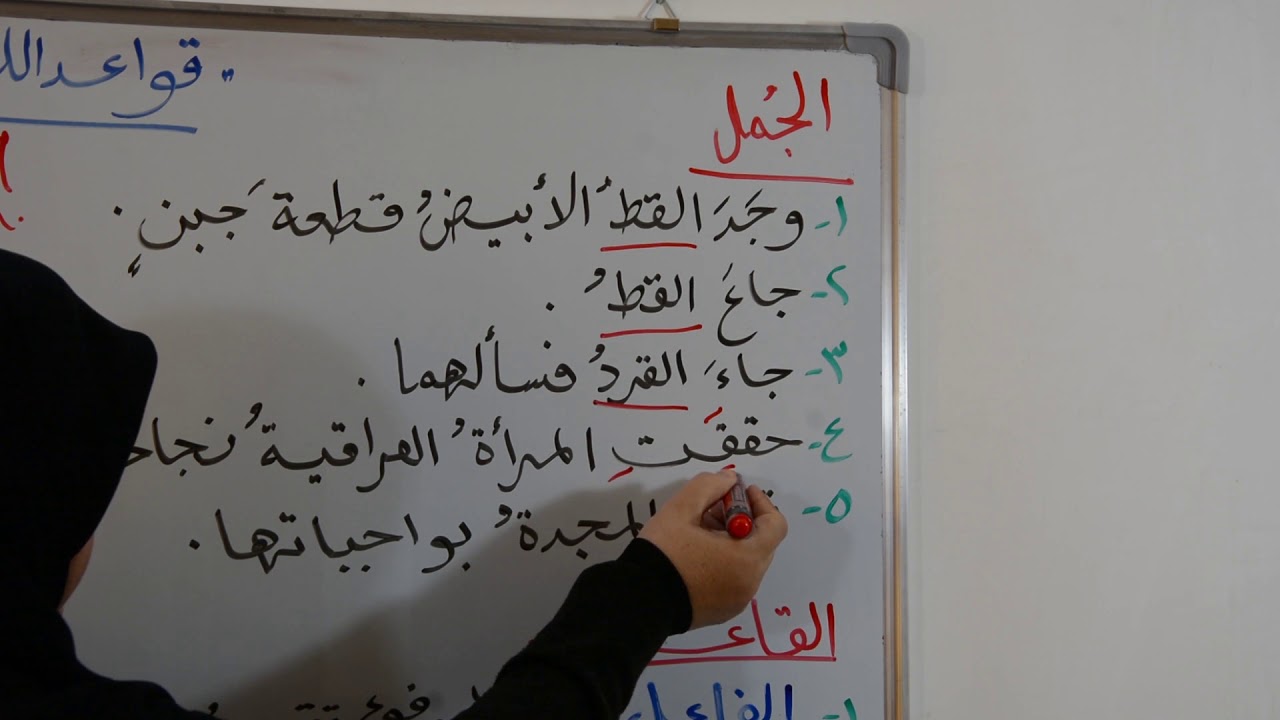 قواعد
الجُمل
١- وجَدَ القطُ الأبيضُ قطعةَ جبنٍ .
٢- جاعَ القطُ .
٣- جاءَ القردُ فسألهما .
٤- حققَتِ المرأةُ العراقيةُ
٥- المجدةُ بواجباتها .
١- الفاعل